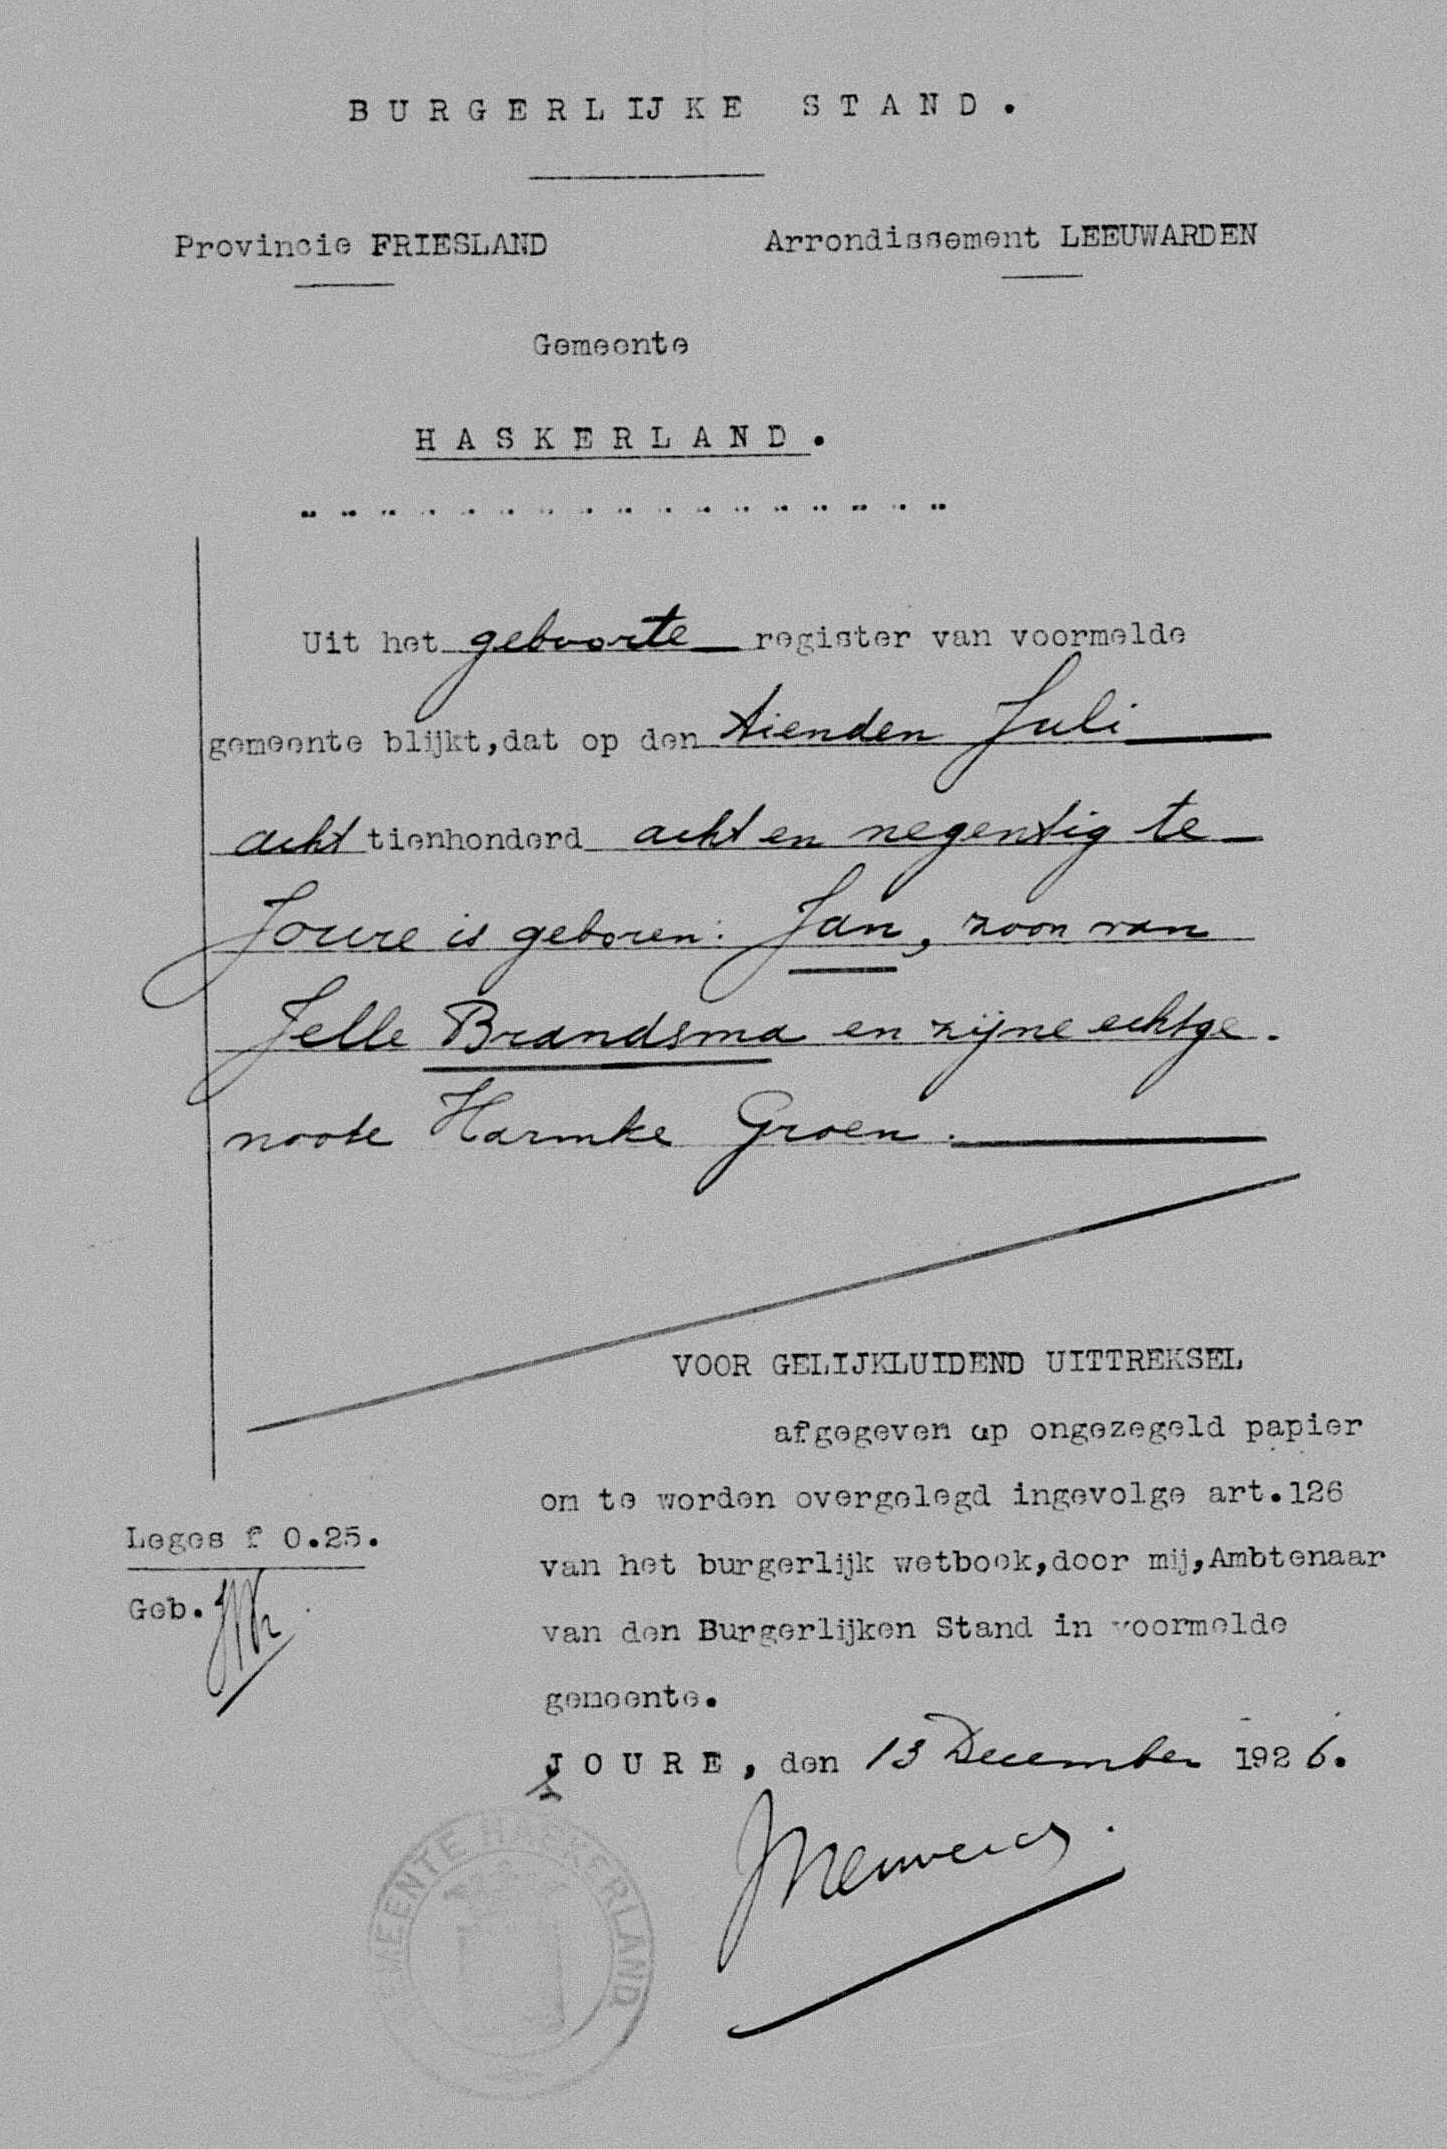 BURGERLIJKE STAND.
Provincie FRIESLAND
Arrondissement LEEUWARDEN
Gemeente
HASKERLAND.
Uit het geboorte register van voormelde
gemeente blijkt, dat op den tienden Juli
acht tienhonderd acht en negentig te
Joure is geboren: Jan, zoon van
Jelle Brandsma en zijne echtge-
noote Harmke Groen.
VOOR GELIJKLUIDEND UITTREKSEL
afgegeven op ongezegeld papier
om te worden overgelegd ingevolge art.126
van het burgerlijk wetboek, door mij, Ambtenaar
van den Burgerlijken Stand in voormelde
gemeente.
Leges f 0.25.
Geb.
JOURE, den 13 December 1926.
GEMEENTE HASKERLAND